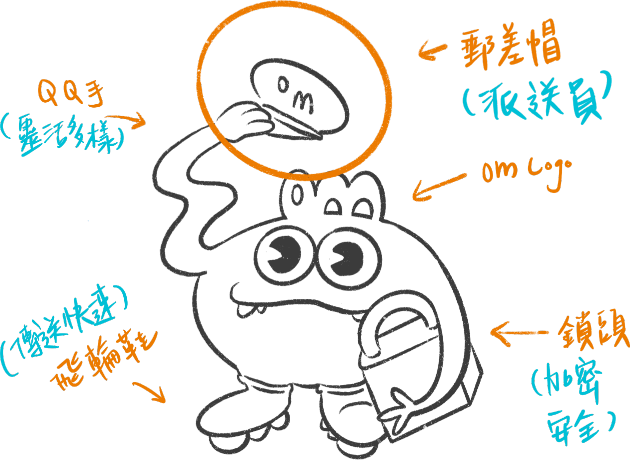 om
郵差帽
(派送員)
QQ手
(靈活多樣)
om Logo
om
(傳送快速)
飛輪鞋
鎖頭
(加密
安全)